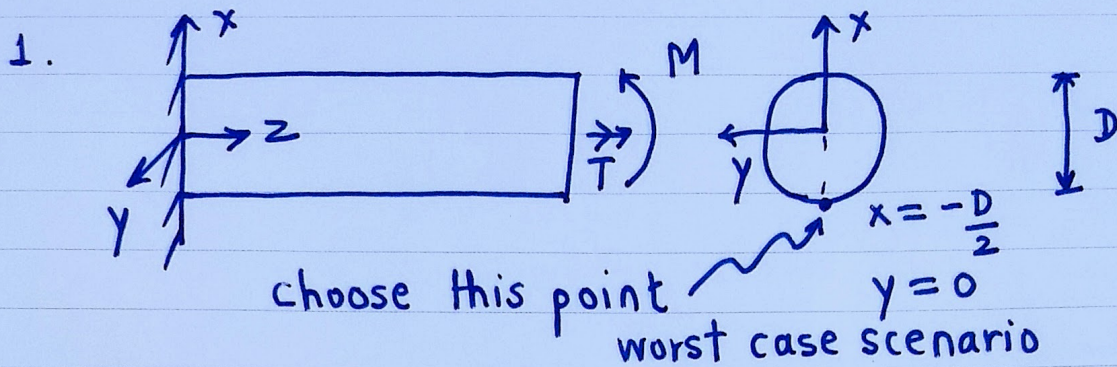 1.
x
z
y
M
T
x
y
D
x = -D/2
y = 0
choose this point
worst case scenario